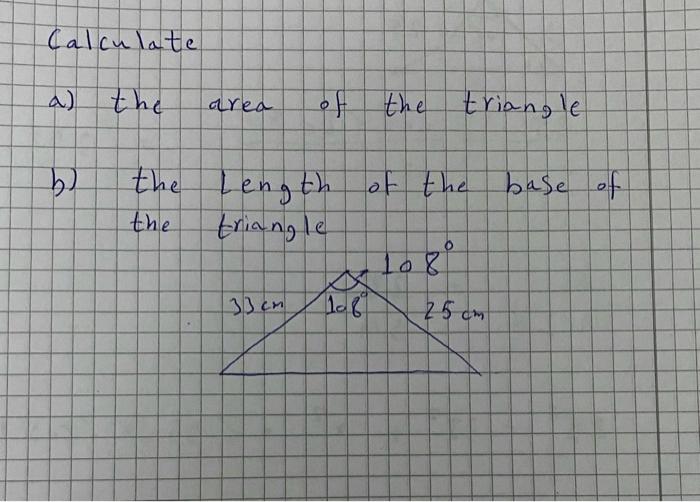 Calculate
a) the area of the triangle
b) the Length of the base of
the triangle
108°
33 cm 108° 25 cm